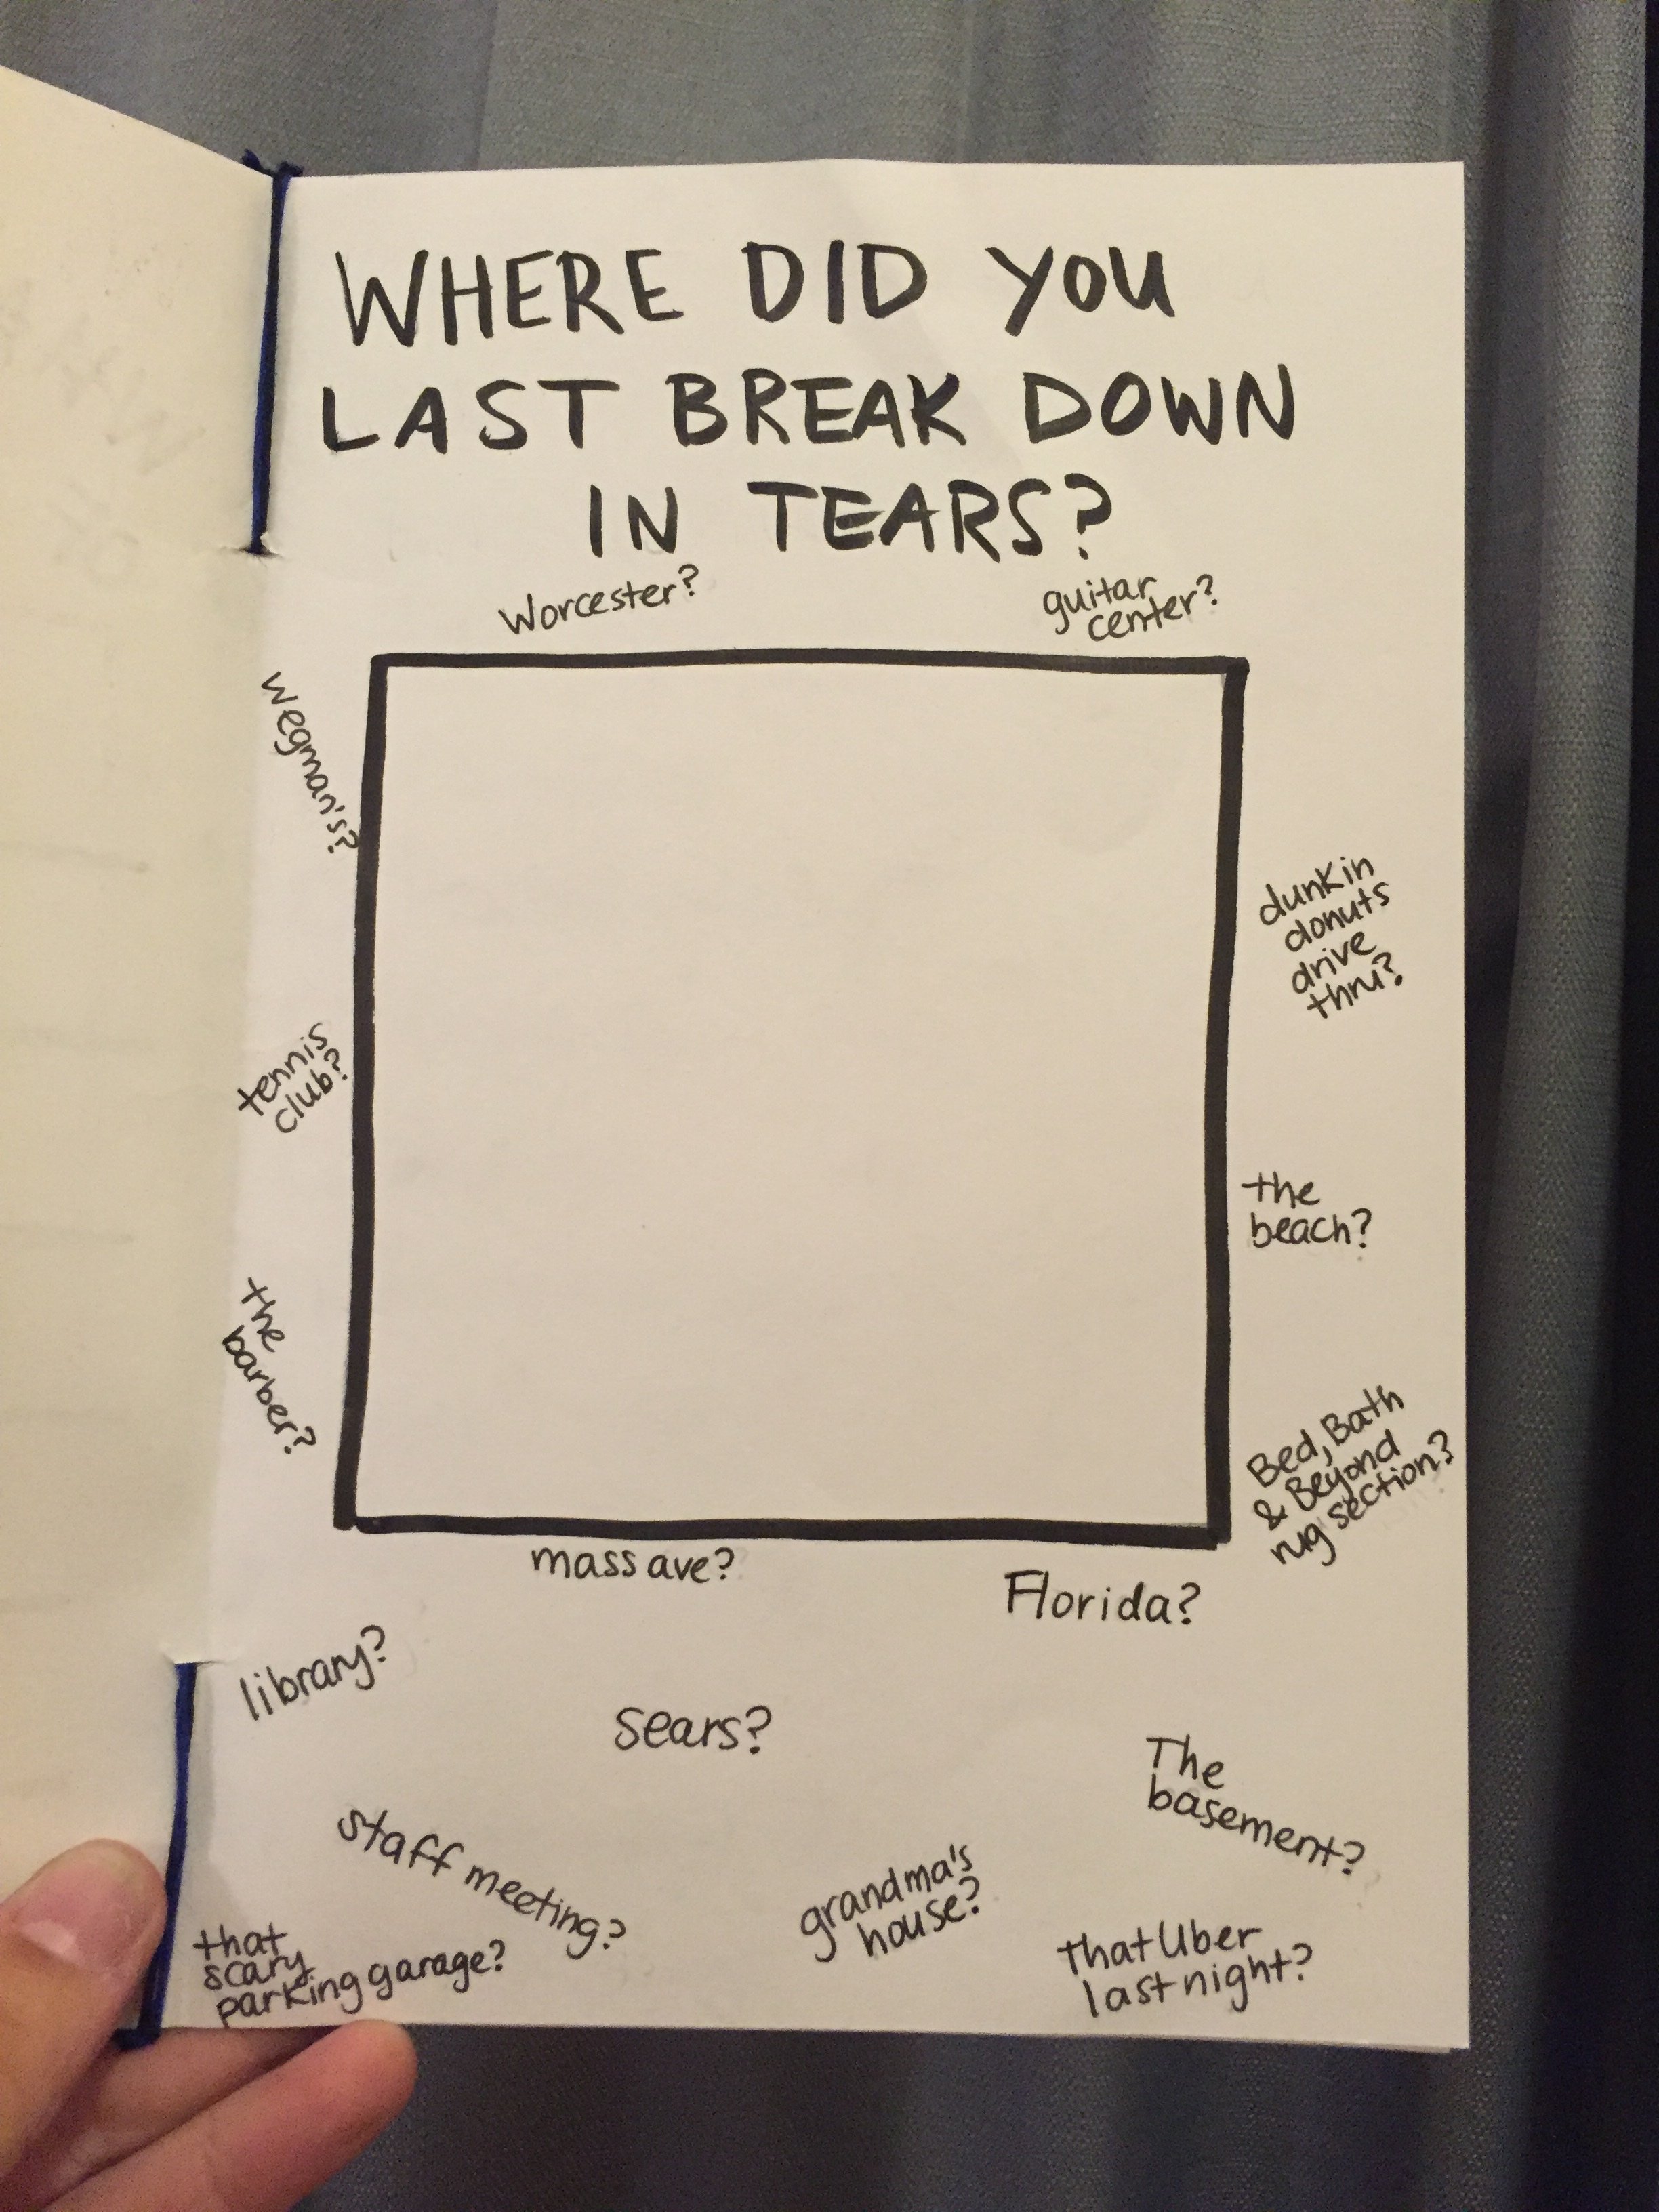 WHERE DID YOU
LAST BREAK DOWN
IN TEARS?
Worcester?
guitar
center?
wegman's?
dunkin
donuts
drive
thru?
tennis
club?
the
beach?
the
barber?
Bed, Bath
& Beyond
rug section?
mass ave?
Florida?
library?
sears?
The
basement?
staff meeting?
grandma's
house?
that
scary
parking garage?
that Uber
last night?